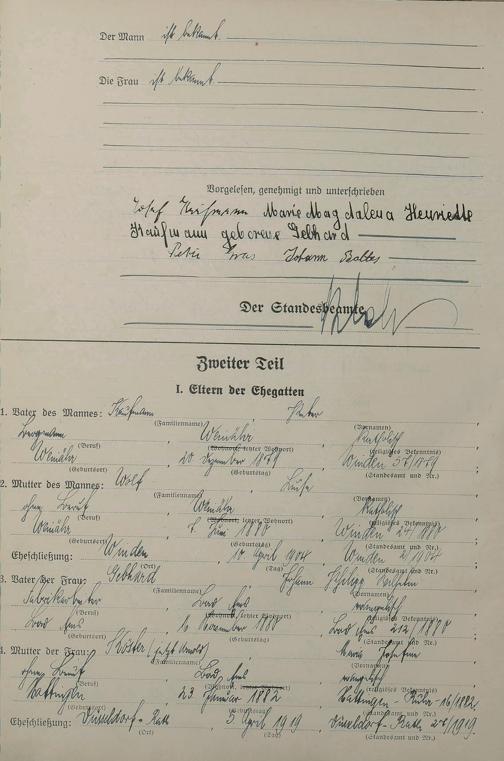 Der Mann ist bekannt
Die Frau ist bekannt
Vorgelesen, genehmigt und unterschrieben
Josef Kaufmann Marie Magdalena Henriette
Kaufmann geborene Gebhard
Peter Johann
Der Standesbeamte
Zweiter Teil
I. Eltern der Ehegatten
1. Vater des Mannes: Kaufmann, Peter
(Familienname) (Vornamen)
Bergmann, Weinähr, katholisch
(Beruf) (Wohnort, letzter Wohnort) (religiöses Bekenntnis)
Weinähr, 20 Dezember 1879, Winden 57/1879
(Geburtsort) (Geburtstag) (Standesamt und Nr.)
2. Mutter des Mannes: Wolf, Luise
(Familienname) (Vornamen)
ohne Beruf, Weinähr, katholisch
(Beruf) (Wohnort, letzter Wohnort) (religiöses Bekenntnis)
Weinähr, 7 Juni 1880, Winden 24/1880
(Geburtsort) (Geburtstag) (Standesamt und Nr.)
Eheschließung: Winden, 17 April 1904, Winden 2/1904
(Ort) (Tag) (Standesamt und Nr.)
3. Vater der Frau: Gebhard, Johann Philipp Wilhelm
(Familienname) (Vornamen)
Fabrikarbeiter, Bad Ems, evangelisch
(Beruf) (Wohnort, letzter Wohnort) (religiöses Bekenntnis)
Bad Ems, November 1880, Bad Ems 212/1880
(Geburtsort) (Geburtstag) (Standesamt und Nr.)
4. Mutter der Frau: (jetzt Arnold),
(Familienname) (Vornamen)
ohne Beruf, Bad Ems, evangelisch
(Beruf) (religiöses Bekenntnis)
Hattingen, 23. Januar 1882, Hattingen-Ruhr 16/1882
(Geburtsort) (Geburtstag) (Standesamt und Nr.)
Eheschließung: Düsseldorf-Rath, 5 April 1919, Düsseldorf-Rath 27/1919.
(Ort) (Tag) (Standesamt und Nr.)